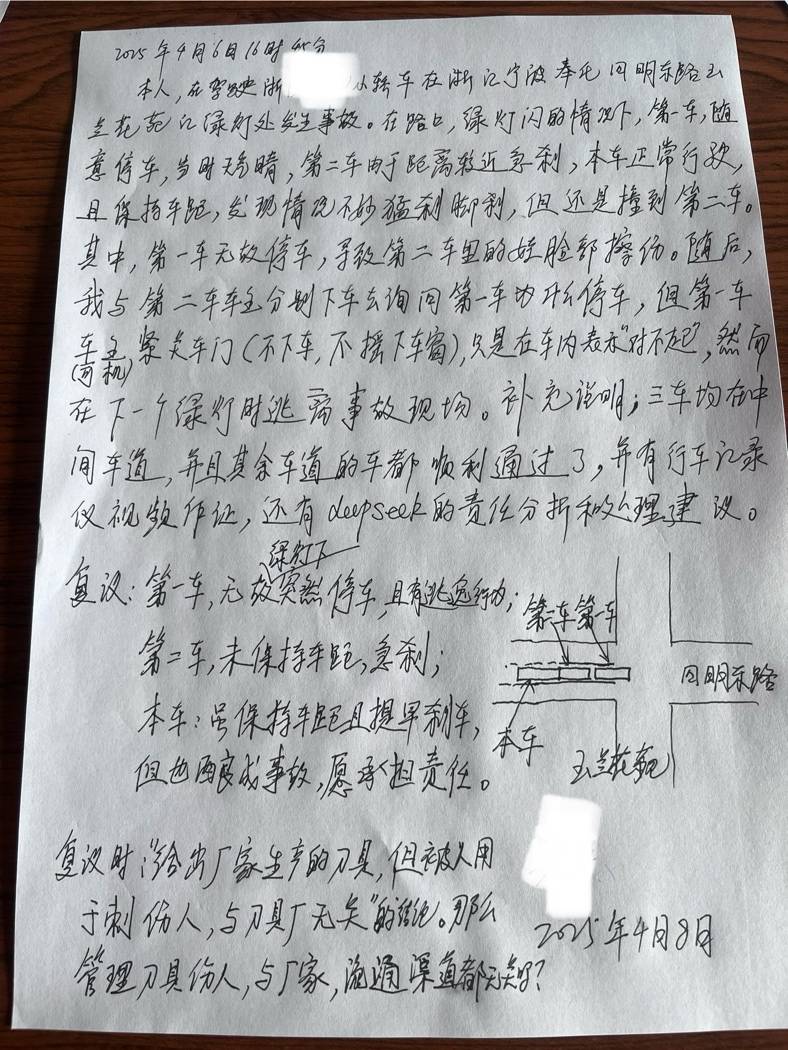 2025年4月6日16时45分
本人,在驾驶浙 小轿车在浙江宁波奉化四明东路玉
兰花苑红绿灯处发生事故。在路口,绿灯闪的情况下,第一车,随
意停车,当时天气晴,第二车由于距离较近急刹,本车正常行驶,
且保持车距,发现情况不妙猛刹脚刹,但还是撞到第二车。
其中,第一车无故停车,导致第二车里的娃脸部擦伤。随后,
我与第二车车主分别下车去询问第一车为什么停车,但第一车
车主(司机)紧关车门(不下车,不摇下车窗),只是在车内表示“对不起”,然而
在下一个绿灯时逃离事故现场。补充说明;三车均在中
间车道,并且其余车道的车都顺利通过了,并有行车记录
仪视频作证,还有deepseek的责任分析和处理建议。
绿灯下
复议:第一车,无故突然停车,且有逃逸行为;
第二车,未保持车距,急刹;
本车:虽保持车距且提早刹车,
但也酿成事故,愿承担责任。
第二车 第一车
四明东路
本车
玉兰花苑
复议时:“给出厂家生产的刀具,但被人用
于刺伤人,与刀具厂无关”的结论。那么
管理刀具伤人,与厂家,流通渠道都无关吗?
2025年4月8日